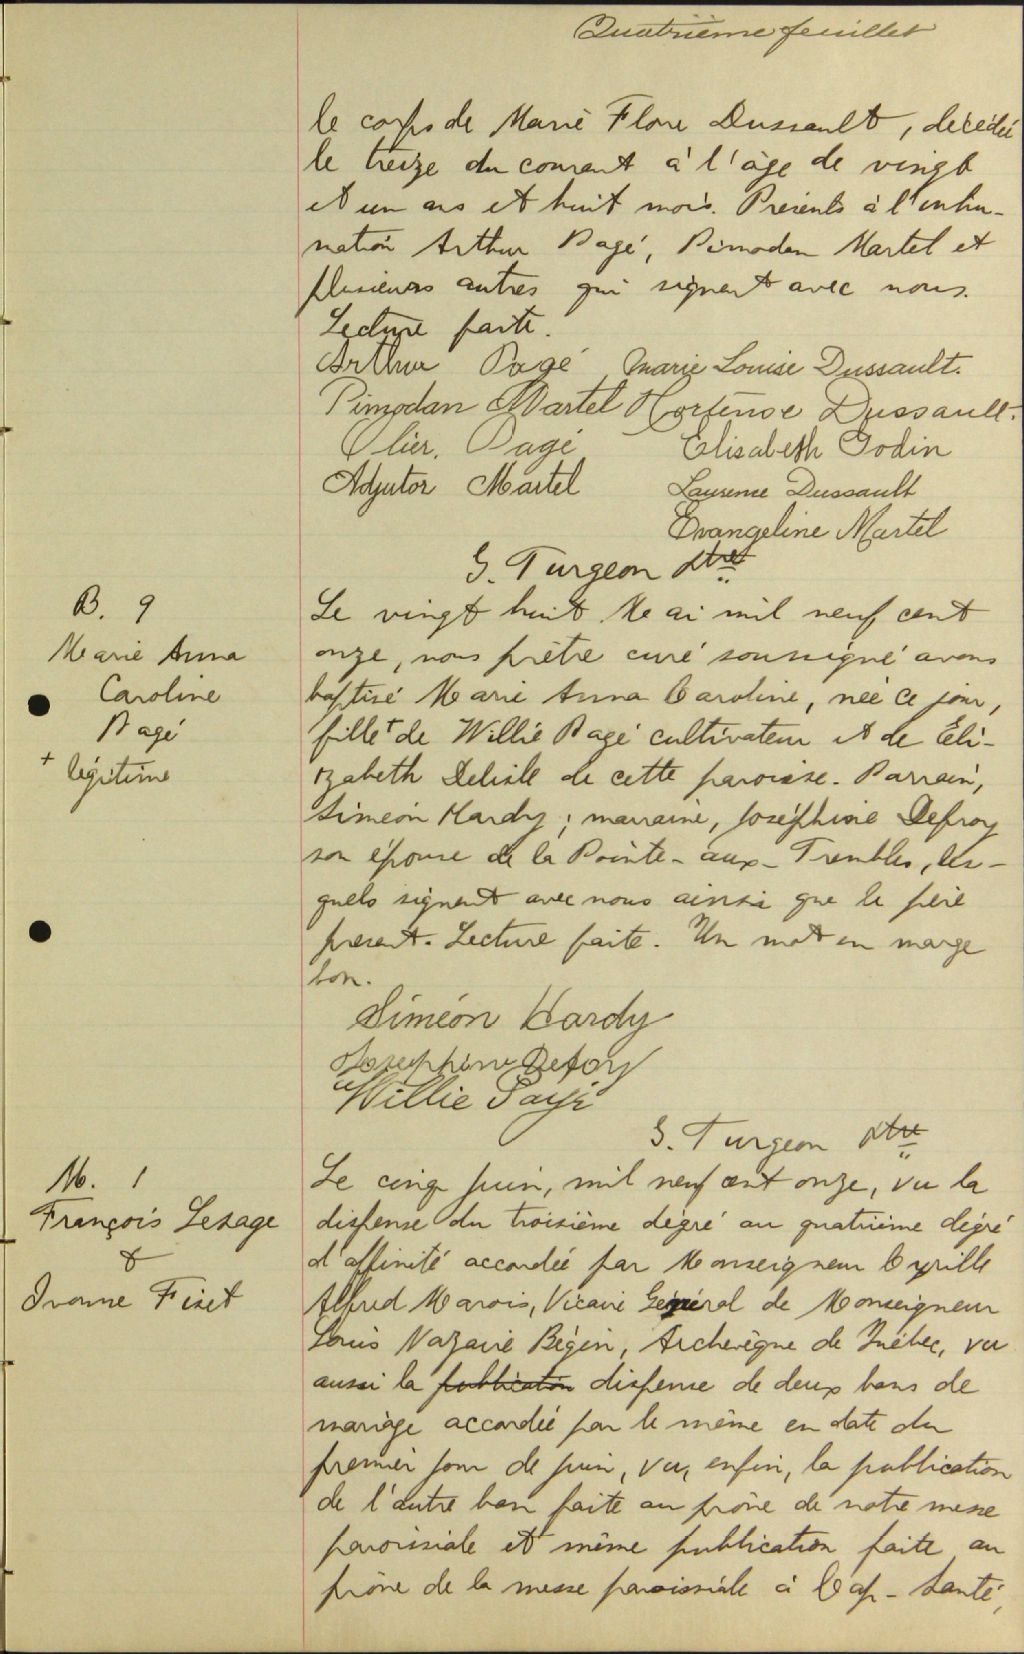 Quatrième feuillet
le corps de Marie Flore Dussault, décédée
le treize du courant à l'âge de vingt
et un ans et huit mois. Présents à l'inhu-
mation Arthur Pagé, Pimodan Martel et
plusieurs autres qui signent avec nous.
Lecture faite.
Arthur Pagé Marie Louise Dussault.
Pimodan Martel Hortense Dussault.
Olier. Pagé Elisabeth Godin
Adjutor Martel Laurence Dussault
Evangeline Martel
G. Turgeon Ptre
B. 9
Marie Anna
Caroline
Pagé
+ légitime
Le vingt huit Mai mil neuf cent
onze, nous prêtre curé soussigné avons
baptisé Marie Anna Caroline, née ce jour,
fille + de Willie Pagé cultivateur et de Éli-
zabeth Delisle de cette paroisse. Parrain,
Siméon Hardy ; marraine, Joséphine Defroy
son épouse de la Pointe-aux-Trembles, les-
quels signent avec nous ainsi que le père
présent. Lecture faite. Un mot en marge
bon.
Siméon Hardy
Josephine Defoy
Willie Pagé
G. Turgeon Ptre
M. 1
François Lesage
&
Ivonne Fiset
Le cinq juin, mil neuf cent onze, vu la
dispense du troisième dégré au quatrième dégré
d'affinité accordée par Monseigneur Cyrille
Alfred Marois, Vicaire Général de Monseigneur
Louis Nazaire Bégin, Archevêque de Québec, vu
aussi la publication dispense de deux bans de
mariage accordée par le même en date du
premier jour de juin, vu, enfin, la publication
de l'autre ban faite au prône de notre messe
paroissiale et même publication faite au
prône de la messe paroissiale à Cap-Santé,